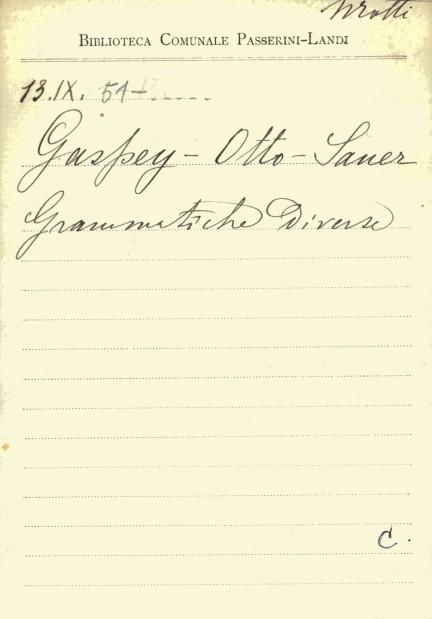 BIBLIOTECA COMUNALE PASSERINI-LANDI
13.IX. 54
Gaspey - Otto - Sauer
Grammatiche Diverse
C.